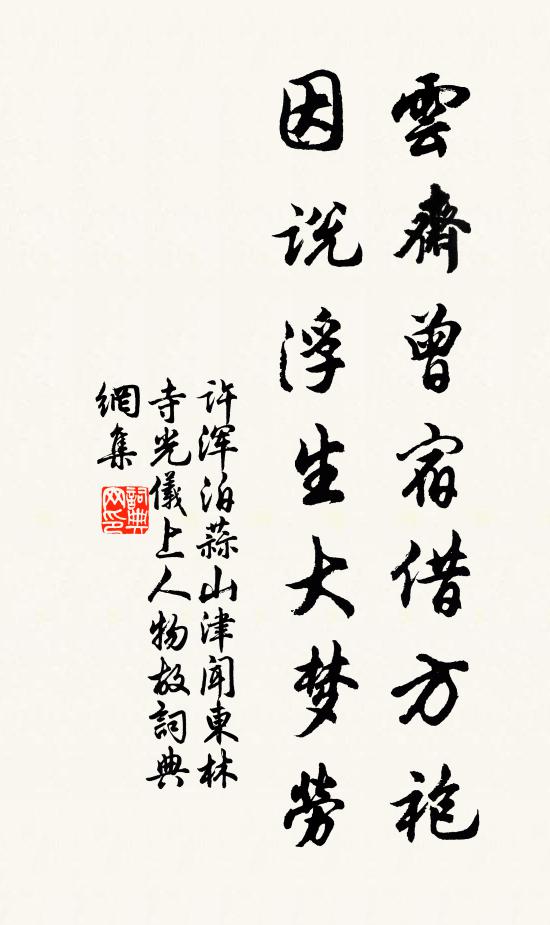 雲齋曾宿借方袍
因说浮生大梦勞
许渾泊蒜山津聞東林
寺光儀上人物故詞典
網集
詞典網印